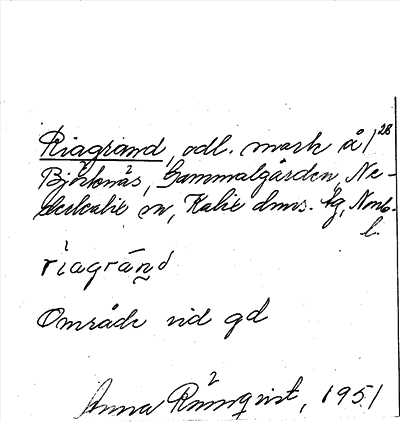 Riagränd, odl. mark å 1²⁸
Björknäs, Gammalgården, Ne-
derkalix sn, Kalix dms. tg, Norrb.
l.
riagränd
Område vid gd
Anna Rönnqvist, 1951